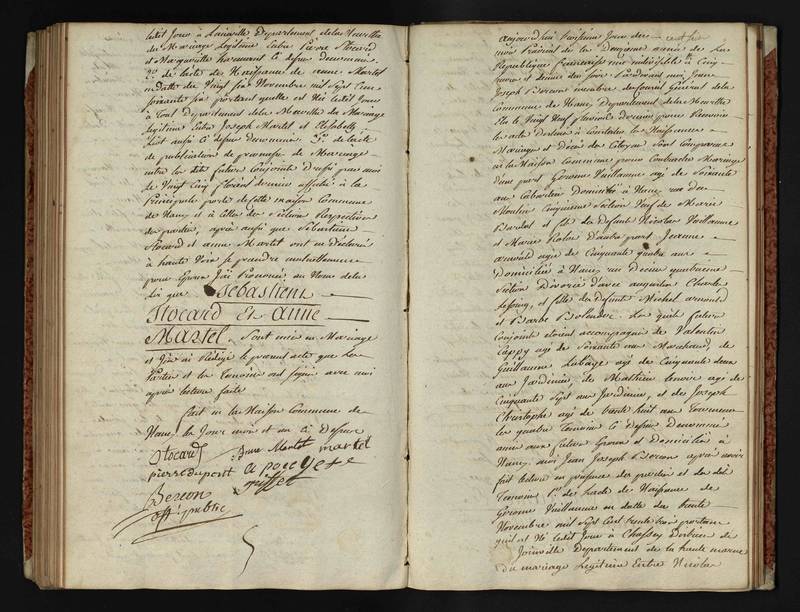 ledit Jour à Lainville Departement de la Meurthe
du Mariage Legitime entre Pierre Stocard
et Marguerite ci dessus denommé
2° de lacte de Naissance de anne Martel
en datte du Vingt six Novembre mil Sept Cent
Soixante six portant quelle est Née ledit Jour
à Toul Departement de la Meurthe du Mariage
legitime Entre Joseph Martel et Elisabeth
aussi ci dessus denommé 3° de lacte
de publication de promesse de Mariage
entre les dits futurs Conjoints Dressé par moi
le Vingt Cinq floreal dernier affiché à la
Principale porte de cette maison Commune
de Nancy et à celles des Sections Respectives
des parties, après aussi que Sebastien
Stocard et anne Martel ont eu declaré
à haute Voix se prendre mutuellement
pour Epoux J'ai Prononcé au Nom de la
Loi que Sebastien
Stocard Et anne
Martel Sont unis en Mariage
et J'en ai Rédigé le present acte que les
Parties et les temoins ont signé avec moi
après lecture faite
fait en la Maison Commune de
Nancy les Jour mois et an ci Dessus
Stocard anne Martel martel
pierre dupont
griffet
Berson
off. public
aujourd'hui Troisieme Jour des
mois Prairial de la Deuxieme année de la
Republique francaise une indivisible à Cinq
heures et demie du soir Pardevant moi Jean
Joseph Berson membre du Conseil Général de la
Commune de Nancy Departement de la Meurthe
Elu le Vingt Neuf pluviose dernier pour Recevoir
les actes Destinés à Constater les Naissances
Mariages et Décès des Citoyens Sont Comparus
en la Maison Commune pour Contracter Mariage
d'une part Gerome Vuillaume agé de Soixante
ans Cabartier Domicilié à Nancy rue du
Moulin Cinquieme Section Veuf de Marie
Bardot et fils des Defunts Nicolas Vuillaume
et Marie Robin D'autre part Jeanne
arnould agée de Cinquante quatre ans
Domiciliée à Nancy rue quatrieme
Section Divorcée d'avec augustin Charles
et fille des defunts Michel arnould
et Barbe Bolender Les quels futurs
Conjoints étoient accompagnés de Valentin
Cappy agé de Soixante ans Marechal, de
Guillaume Labaye agé de Cinquante deux
ans Jardinier, de Mathieu lenoir agé de
Cinquante Sept ans Jardinier, et de Joseph
Christophe agé de trente huit ans Tonnelier
les quatre Temoins ci Dessus Denommés
amis aux futurs Epoux et Domiciliés à
Nancy, moi Jean Joseph Berson après avoir
fait lecture en presence des parties et des dits
Temoins 1° de lacte de Naissance de
Gerome Vuillaume en datte du trente
Novembre mil Sept Cent trente trois portant
quil est Né ledit Jour à Chassey District de
Joinville Departement de la haute marne
du mariage Legitime Entre Nicolas